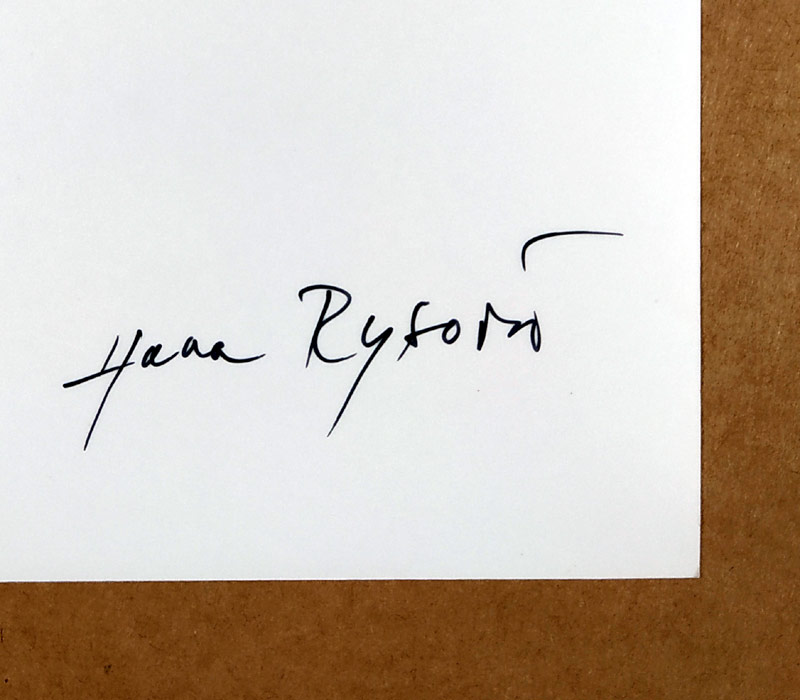 Hana Rysová